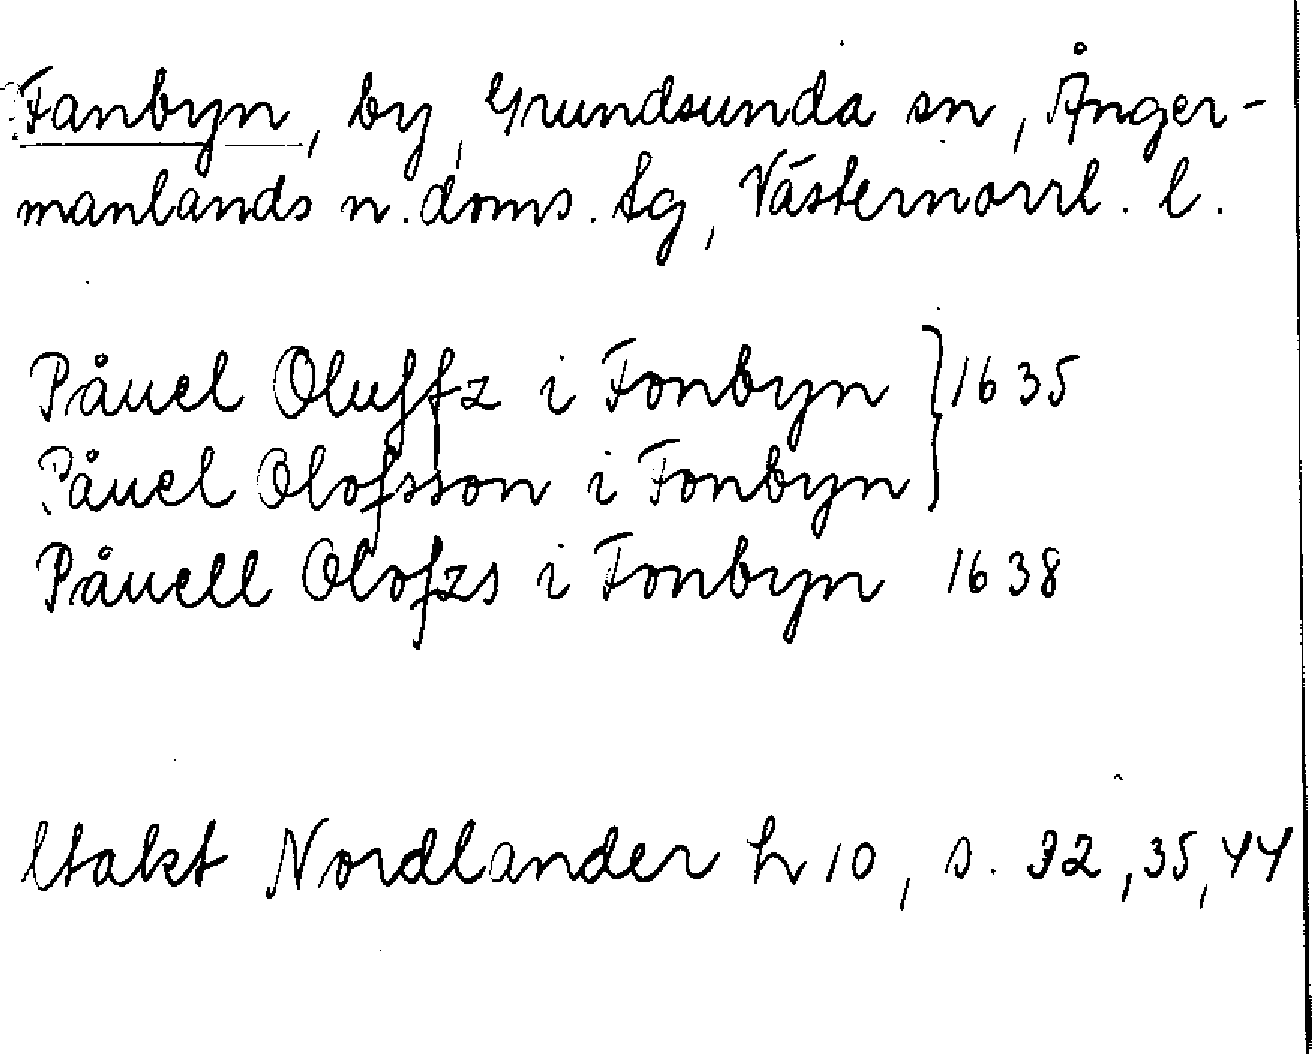 Fanbyn, by, Grundsunda sn, Ånger-
manlands n. doms. tg, Västernorrl. l.
Påuel Oluffz i Fonbyn } 1635
Påuel Olofsson i Fonbyn
Påuell Olofzs i Fonbyn 1638
Utakt Nordlander h 10, s. 32, 35, 44